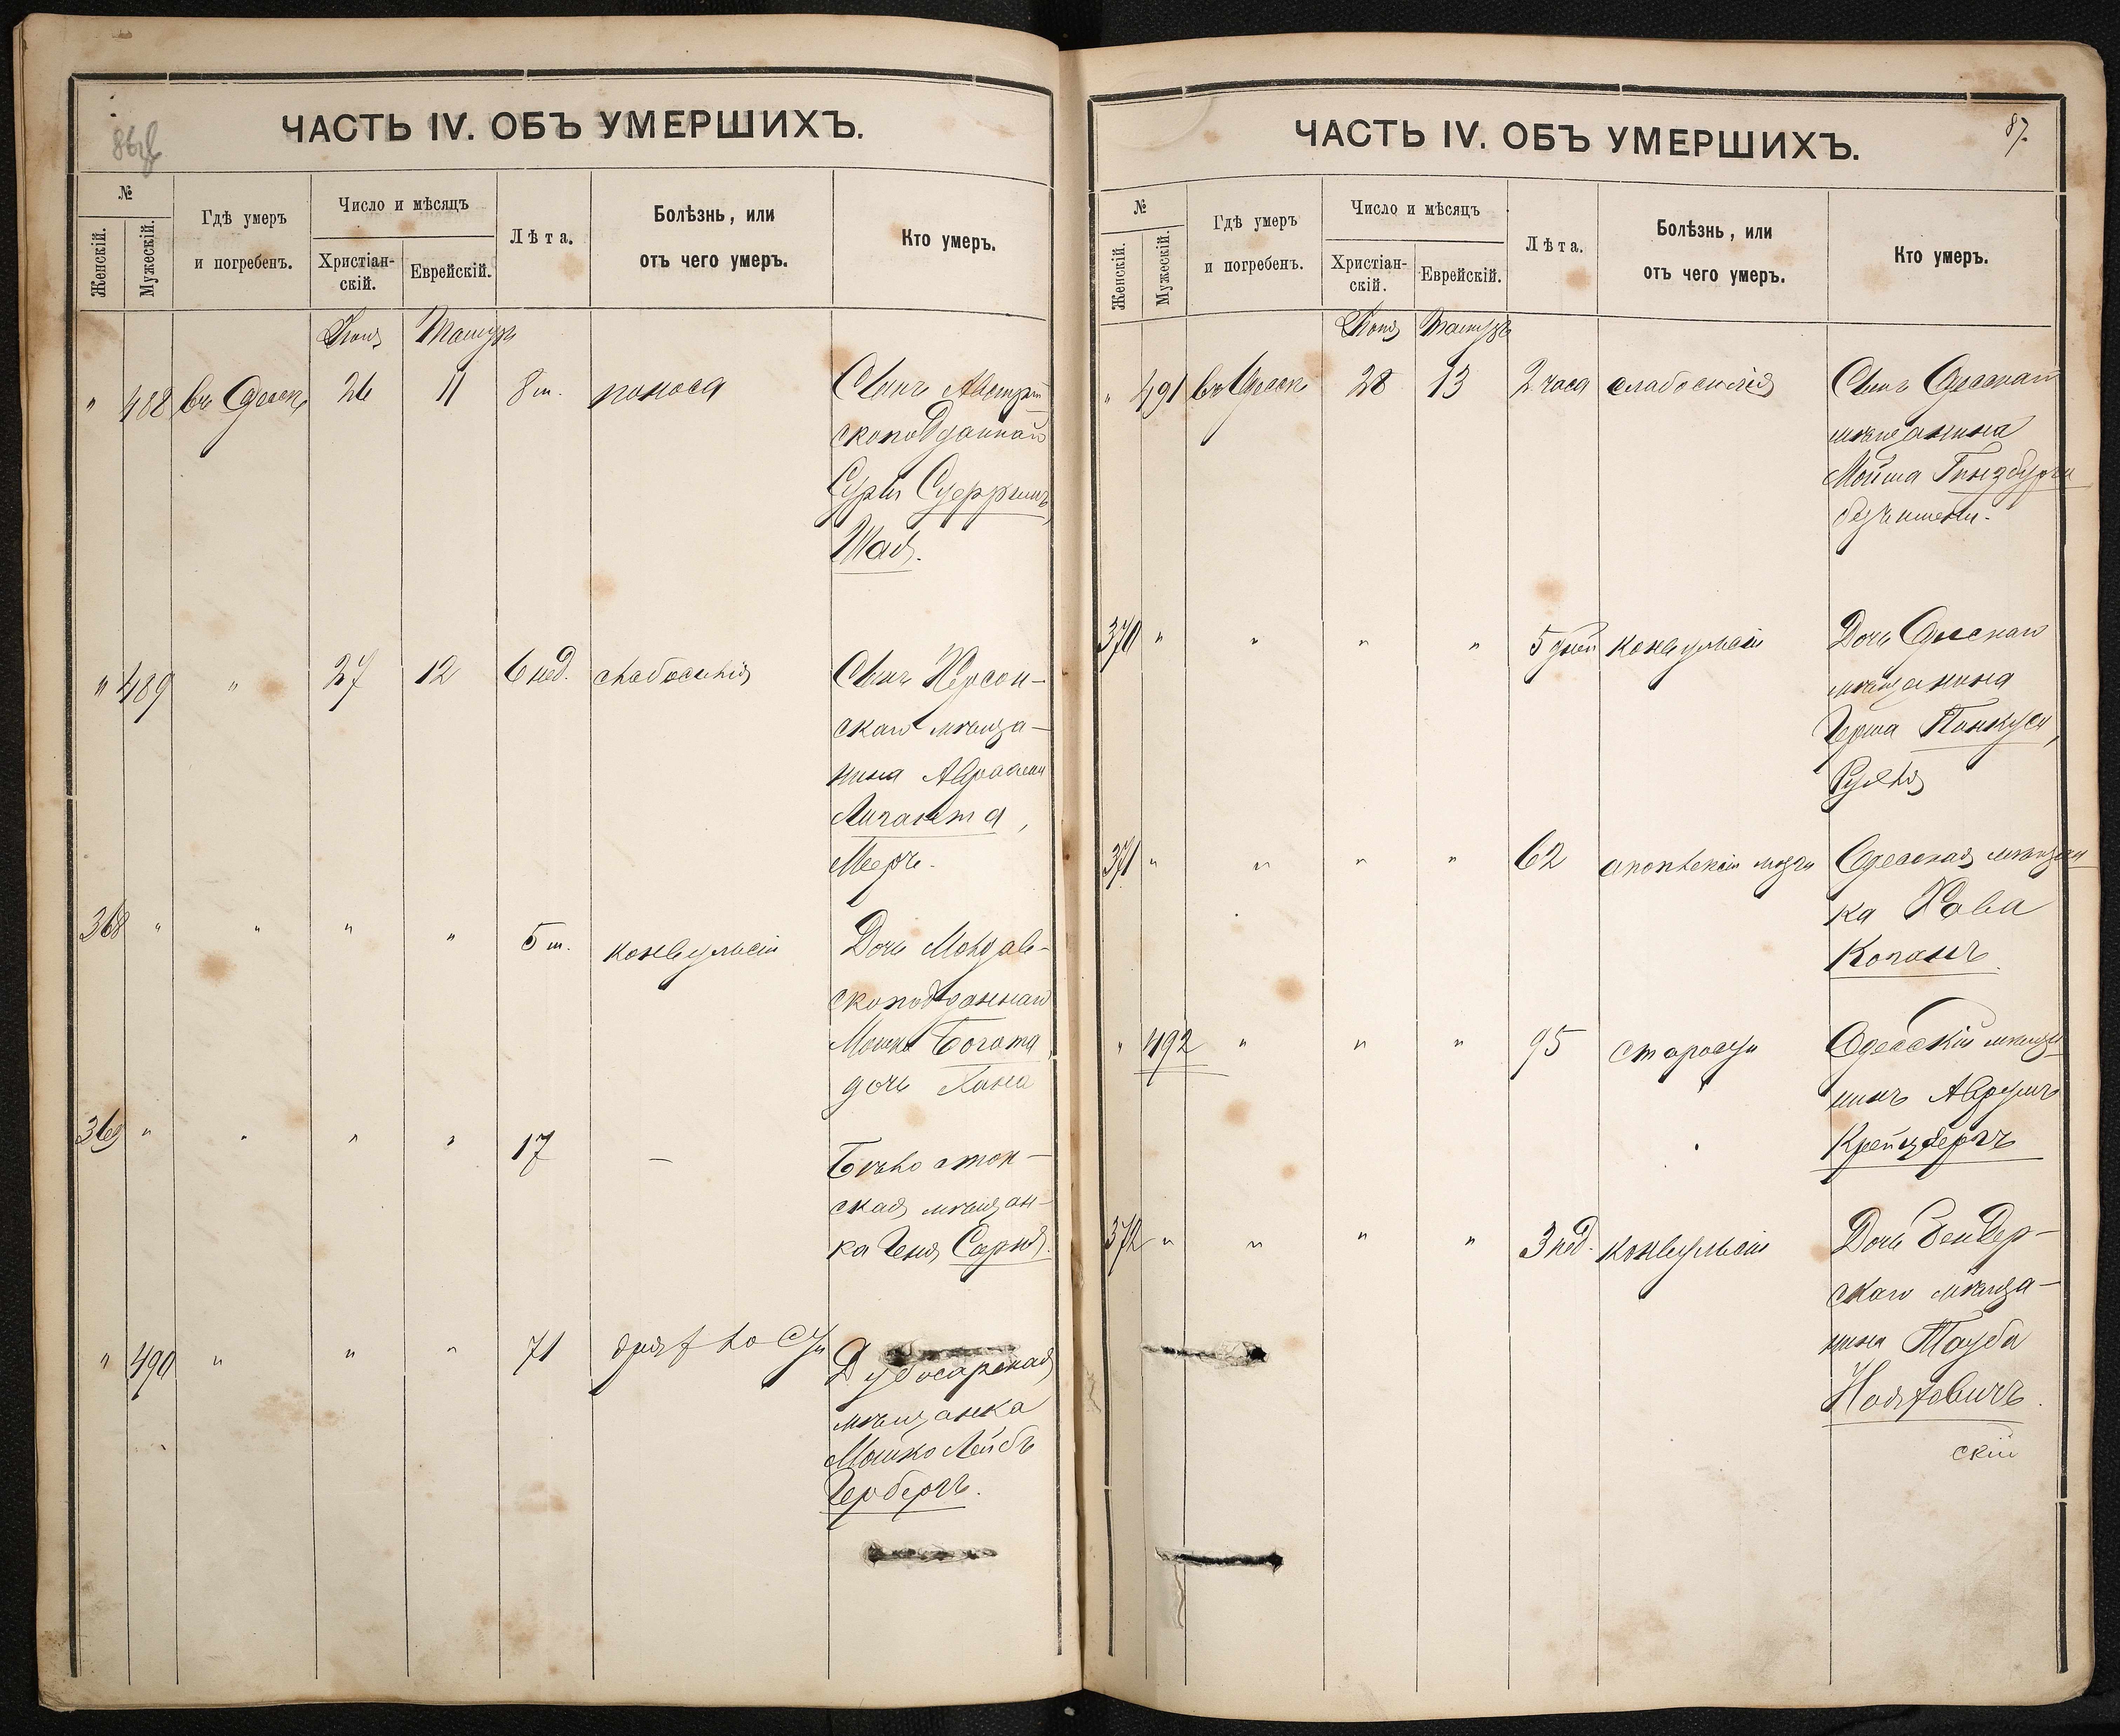 ЧАСТЬ IV. ОБЪ УМЕРШИХЪ.
№
Женскій.
Мужескій.
Гдѣ умеръ
и погребенъ.
Число и мѣсяцъ
Христіан-
скій.
Еврейскій.
Лѣта.
Болѣзнь, или
отъ чего умеръ.
Кто умеръ.
Іюня Тамузъ
" 488 въ Одессѣ 26 11 8 м. поноса Сынъ Австрій
скоподданнаго
Суры
Шая.
" 489 " 27 12 6 нед. слабосилія Сынъ Херсон-
скаго мѣща-
нина Авраама
Липанта,
Мееръ.
368 " " " " 5 м. конвульсіи Дочь Молдав-
скоподданнаго
Мошко Богата
дочь Хана
369 " " " " 17 — Бѣлосток-
ская мѣщан-
ка Геня Сарня.
" 490 " " " 71 дряхлости Дубосарская
мѣщанка
Мошко Лейбъ
Герберъ.
ЧАСТЬ IV. ОБЪ УМЕРШИХЪ.
87.
№
Женскій.
Мужескій.
Гдѣ умеръ
и погребенъ.
Число и мѣсяцъ
Христіан-
скій.
Еврейскій.
Лѣта.
Болѣзнь, или
отъ чего умеръ.
Кто умеръ.
Іюня Тамузъ
" 491 въ Одессѣ 28 13 2 часа слабосилія Сынъ Одесскаго
мѣщанина
Мойша Гинзбурга
безъ имени.
370 " " " " 5 дней конвульсіи Дочь Одесскаго
мѣщанина
Герша Пинкуса,
Рухля
371 " " " " 62 апоплексіи мозга Одесская мѣщан
ка Хова
Коганъ.
" 492 " " " 95 старости Одесскій мѣща
нинъ Аврумъ
Крейцбергъ
372 " " " " 3 нед. конвульсіи Дочь Бендер-
скаго мѣща-
нина Тауба
Нояховичъ.
скій